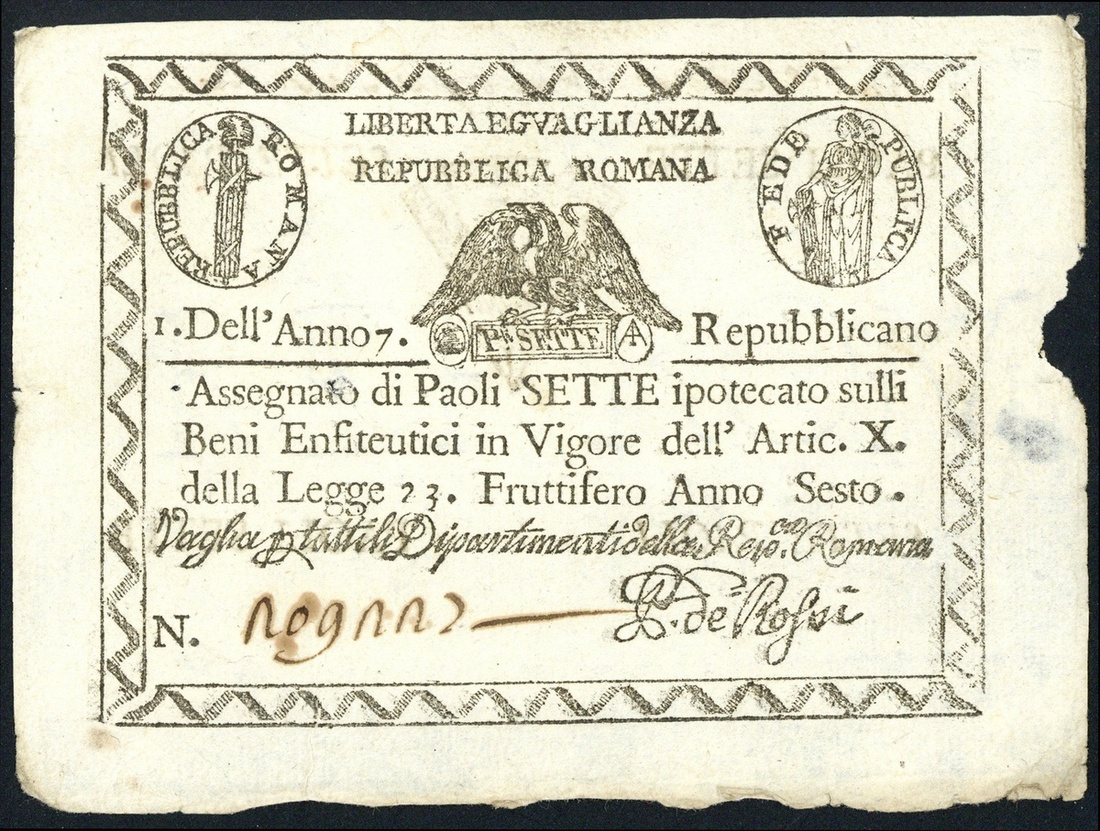 LIBERTA EGVAGLIANZA
REPUBBLICA ROMANA
REPUBBLICA ROMANA
FEDE PUBLICA
Pli SETTE
1. Dell'Anno 7. Repubblicano
Assegnato di Paoli SETTE ipotecato sulli
Beni Enfiteutici in Vigore dell' Artic. X.
della Legge 23. Fruttifero Anno Sesto.
Vaglia p tutti li Dipartimenti della Rep.ca Romana
N.
de Rossi